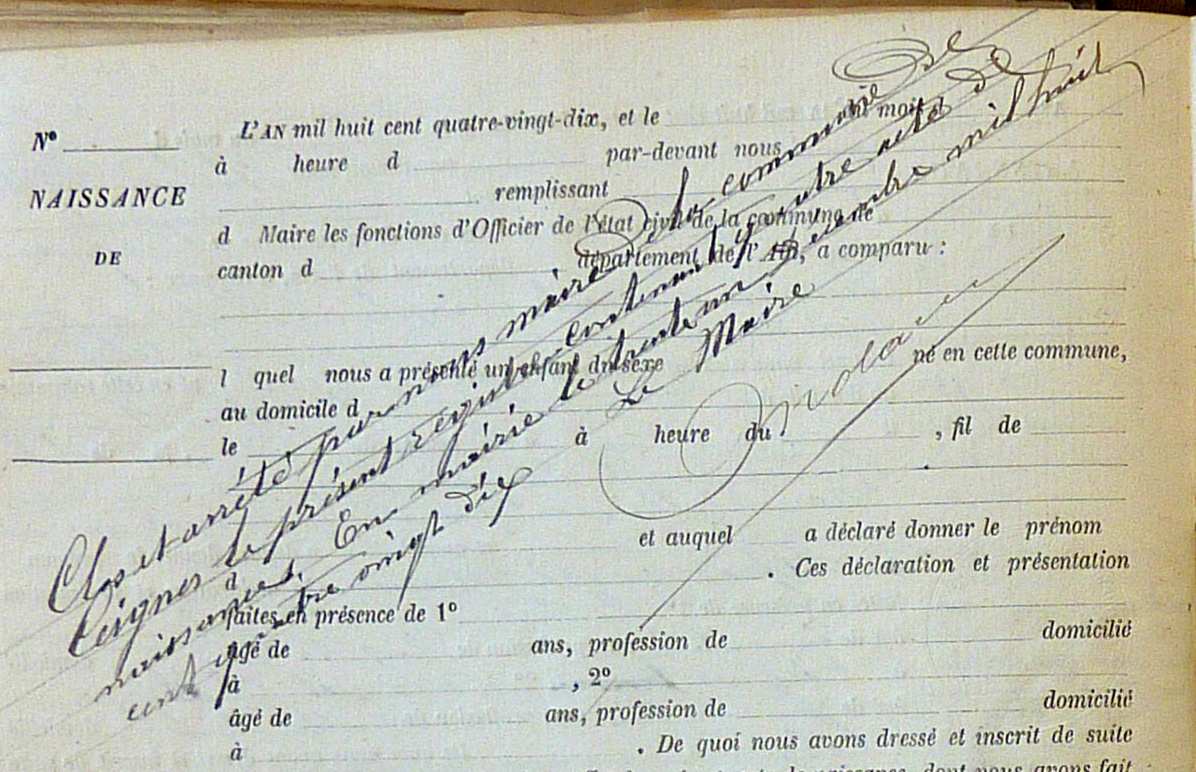 L'AN mil huit cent quatre-vingt-dix, et le du mois d
N°
à heure d par-devant nous
NAISSANCE
remplissant
d Maire les fonctions d'Officier de l'état civil de la commune de
DE
canton d département de l'AIN, a comparu :
l quel nous a présenté un enfant du sexe né en cette commune,
au domicile d
le à heure du , fil de
et auquel a déclaré donner le prénom
d . Ces déclaration et présentation
faites en présence de 1°
âgé de ans, profession de domicilié
à , 2°
âgé de ans, profession de domicilié
à . De quoi nous avons dressé et inscrit de suite
de naissance, dont nous avons fait
Clos et arrêté par nous maire de la commune de
Ceignes le présent registre contenant quatre acte de
naissances. En mairie le trente un décembre mil huit
cent quatre vingt dix Le Maire